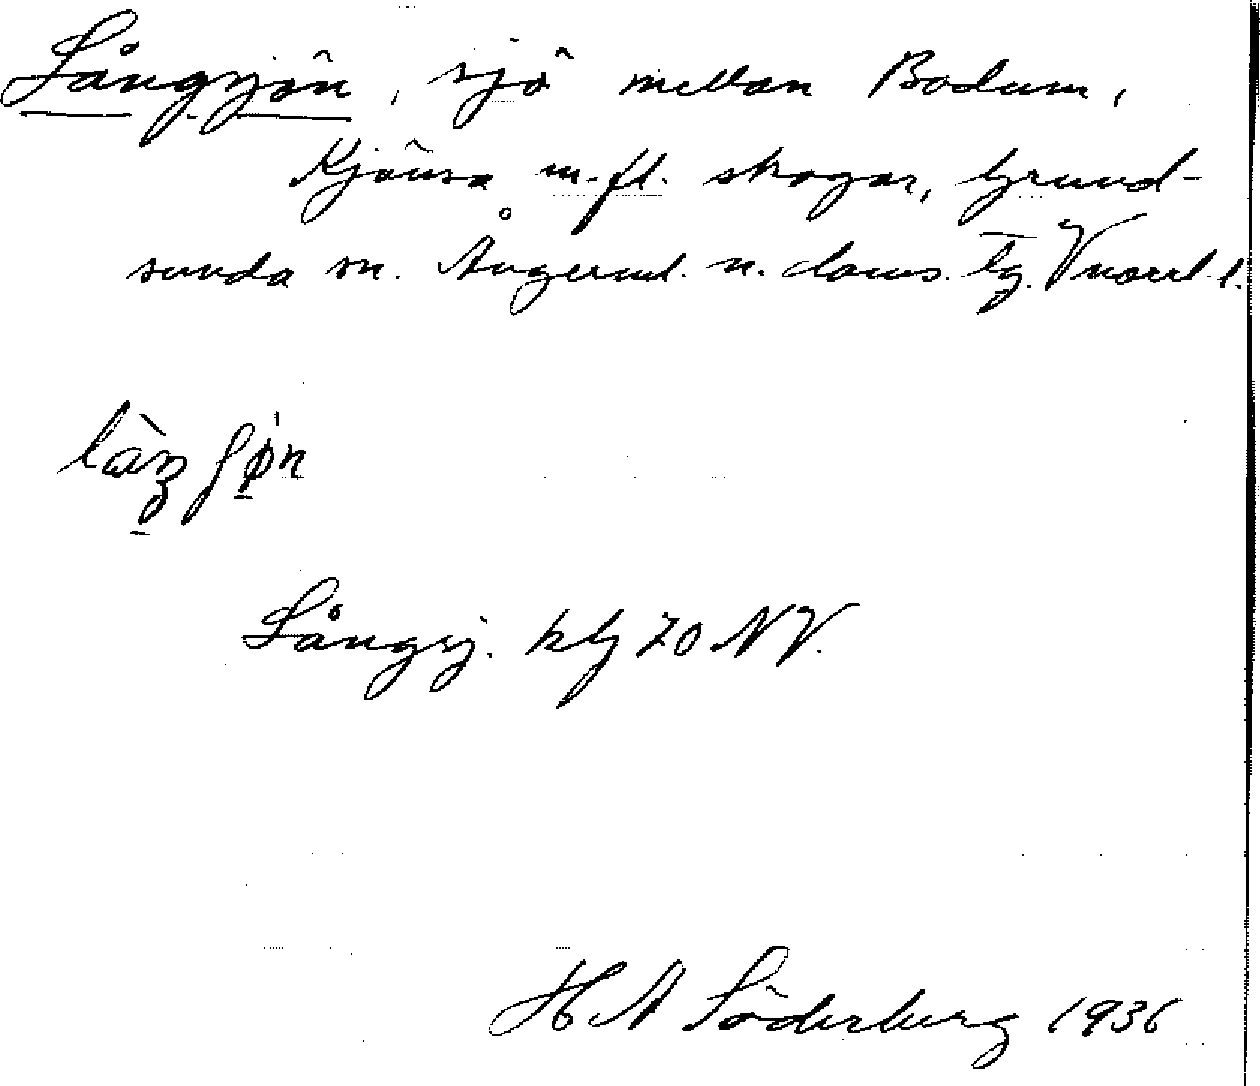 Långsjön, sjö mellan Bodum,
Kjäusa m.fl. skogar, Grund-
sunda sn. Ångerml. n. doms. Tg. Vnorrl. l.
Långsj. kbl 70 NV.
H A Söderberg 1936